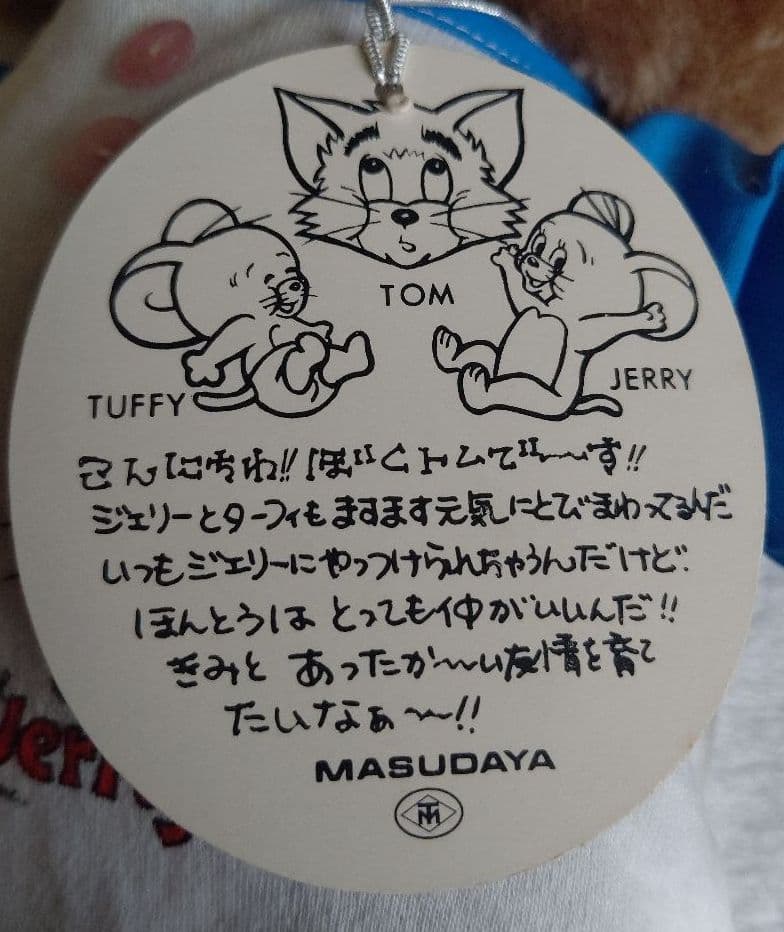 TOM
TUFFY
JERRY
こんにちわ!! ぼくトムで〜〜す!!
ジェリーとターフィもますます元気にとびまわってるんだ
いつもジェリーにやっつけられちゃうんだけど
ほんとうは とっても仲がいいんだ!!
きみと あったか〜い友情を育て
たいなぁ〜!!
MASUDAYA
TM
Jerry